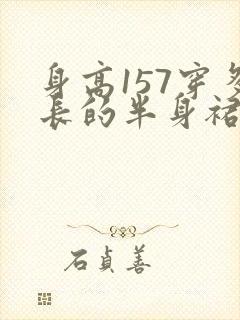 身高157穿多
长的半身裙
石贞善